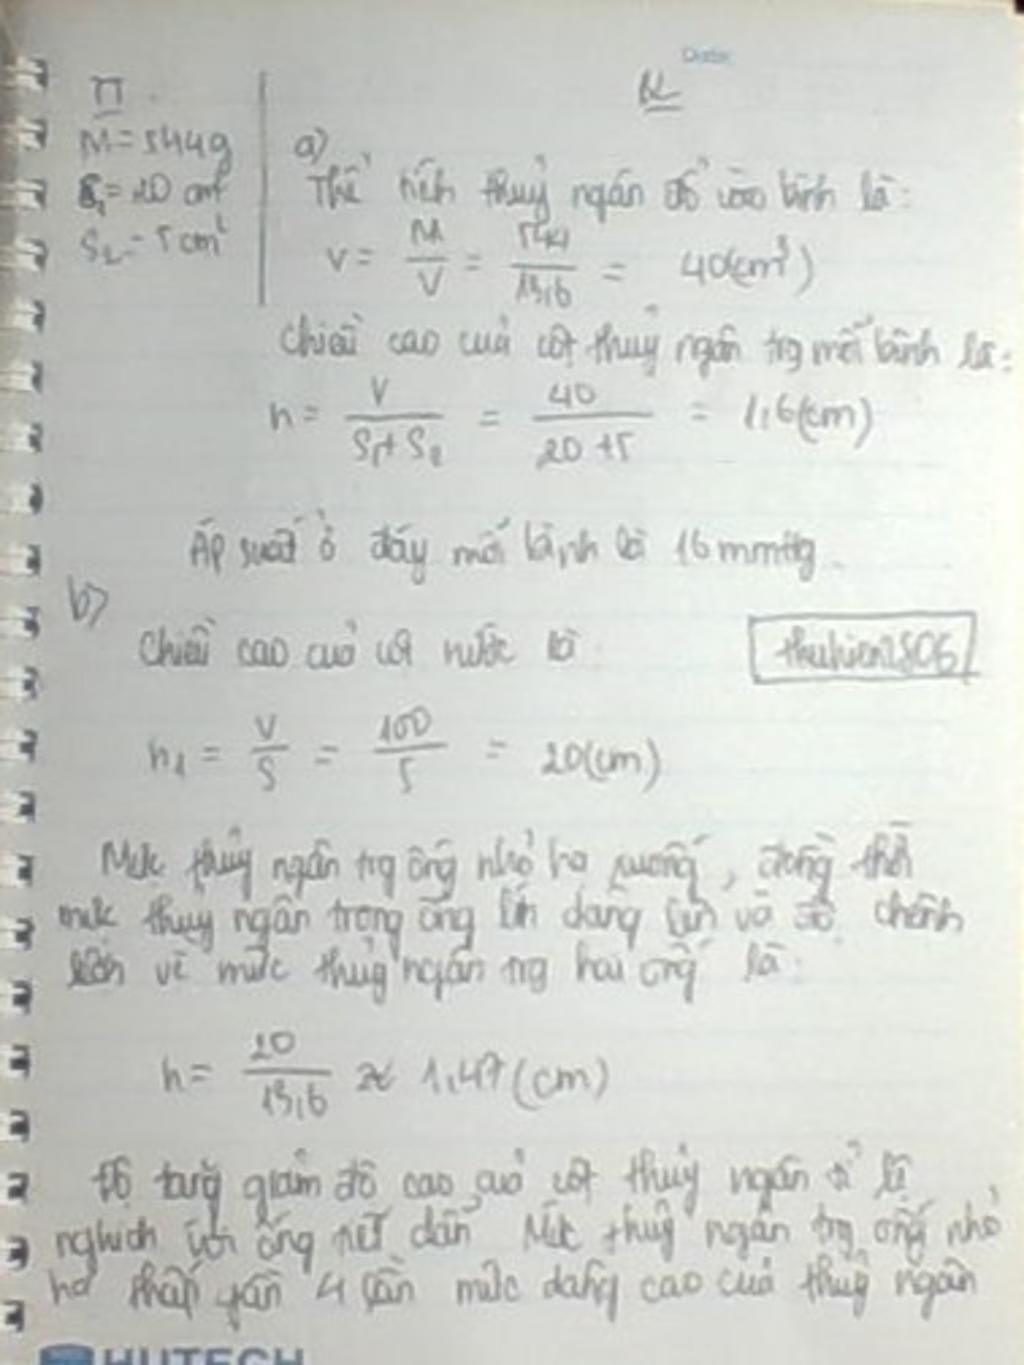 Date:
TT
M = 544g
S₁ = 20 cm²
S₂ = 5 cm²
a)
Thể tích thuỷ ngân đổ vào bình là:
V = M/V = 544/13,6 = 40(cm³)
Chiều cao cuả cột thuỷ ngân trg mỗi bình là:
h = V/S₁+S₂ = 40/20+5 = 1,6(cm)
Áp suất ở đáy mỗi bình là 16mmHg.
b)
Chiều cao cuả cột nước là
thuhien2806
h₁ = V/S = 100/5 = 20(cm)
Mức thủy ngân trg ống nhỏ hạ xuống, đồng thời
mức thủy ngân trong ống lớn dâng lên và độ chênh
lệch về mức thủy ngân trg hai ống là:
h = 20/13,6 ≈ 1,47(cm)
Độ tăng giảm độ cao cuả cột thuỷ ngân tỉ lệ
nghịch với ống tiết diện Mức thuỷ ngân trg ống nhỏ
hạ thấp gấn 4 lần mức dâng cao cuả thuỷ ngân
HUTECH